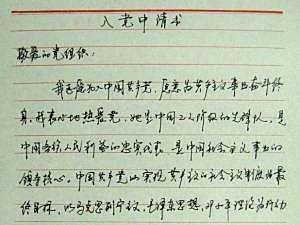 入党申请书
敬爱的党组织:
我志愿加入中国共产党,愿意为共产主义事业奋斗终
身。我衷心地热爱党,她是中国工人阶级的先锋队,是
中国各族人民利益的忠实代表,是中国社会主义事业的
领导核心。中国共产党以实现共产主义的社会主义制度为最
终目标,以马克思列宁主义、毛泽东思想、邓小平理论为行动